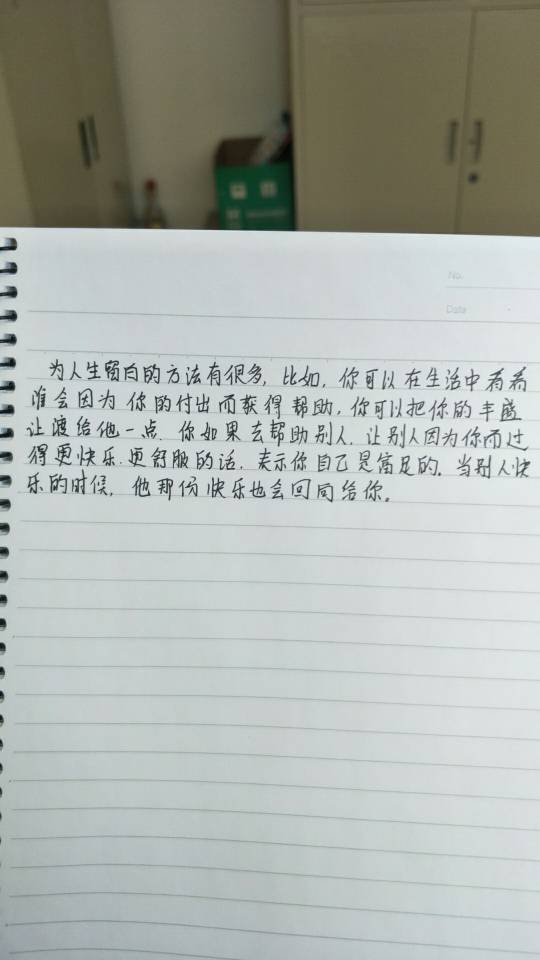 No.
Date
为人生留白的方法有很多，比如，你可以在生活中看看
谁会因为你的付出而获得帮助，你可以把你的丰盛
让渡给他一点．你如果去帮助别人，让别人因为你而过
得更快乐．更舒服的话，表示你自己是富足的．当别人快
乐的时候，他那份快乐也会回向给你。